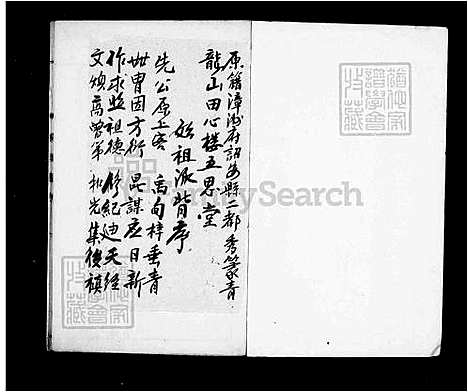 原籍漳洲府詔安縣二都秀篆青
龍山田心楼五思堂
始祖派背序
先公原上客 禹甸梓垂青
世胄因方衍 昆謀應日新
作求丕祖德 修紀迪天經
文煥高曾革 和光集後禎
FamilySearch